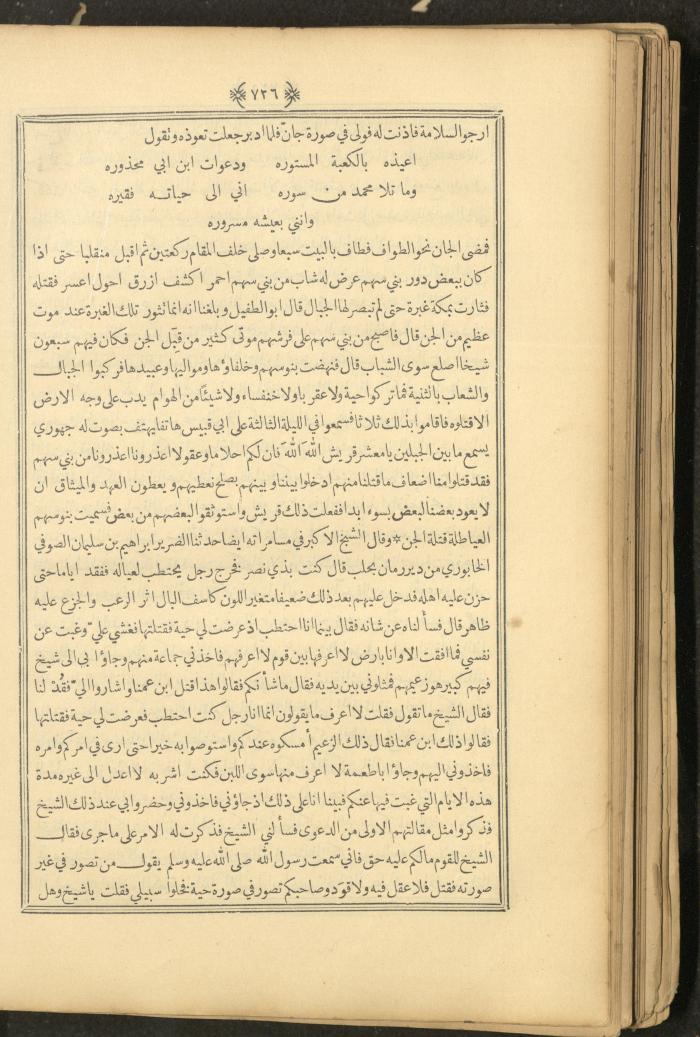 ٧٢٦
ارجو السلامة فاذنت له فولى في صورة جانّ فلما ادبر جعلت تعوذه وتقول
اعيذه بالكعبة المستوره ودعوات ابن ابي محذوره
وما تلا محمد من سوره اني الى حياته فقيره
وانني بعيشه مسروره
فمضى الجان نحو الطواف فطاف بالبيت سبعا وصلى خلف المقام ركعتين ثم اقبل منقلبا حتى اذا
كان ببعض دور بني سهم عرض له شاب من بني سهم احمر اكشف ازرق احول اعسر فقتله
فثارت بمكة غبرة حتى لم تبصر لها الجبال قال ابو الطفيل وبلغنا انه انما تثور تلك الغبرة عند موت
عظيم من الجن قال فاصبح من بني سهم على فرشهم موتى كثير من قِبَل الجن فكان فيهم سبعون
شيخا اصلع سوى الشباب قال فنهضت بنو سهم وخلفاؤها ومواليها وعبيدها فركبوا الجبال
والشعاب بالثنية فما تركوا حية ولا عقربا ولا خنفساء ولا شيئًا من الهوام يدب على وجه الارض
الا قتلوه فاقاموا بذلك ثلاثا فسمعوا في الليلة الثالثة على ابي قبيس هاتفا يهتف بصوت له جهوري
يسمع ما بين الجبلين يا معشر قريش اللهَ اللهَ فان لكم احلاما وعقولا اعذرونا اعذرونا من بني سهم
فقد قتلوا منا اضعاف ما قتلنا منهم ادخلوا بيننا وبينهم بصلح نعطيهم ويعطون العهد والميثاق ان
لا يعود بعضنا لبعض بسوء ابدا ففعلت ذلك قريش واستوثقوا لبعضهم من بعض فسميت بنو سهم
العياطلة قتلة الجن * وقال الشيخ الاكبر في مسامراته ايضا حدثنا الضرير ابراهيم بن سليمان الصوفي
الخابوري من دير رمان بحلب قال كنت بذي نصر فخرج رجل يحتطب لعياله ففقد اياما حتى
حزن عليه اهله فدخل عليهم بعد ذلك ضعيفا متغير اللون كاسف البال اثر الرعب والجزع عليه
ظاهر قال فسأ لناه عن شانه فقال بينما انا احتطب اذ عرضت لي حية فقتلتها فغشي عليّ وغبت عن
نفسي فما افقت الا وانا بارض لا اعرفها بين قوم لا اعرفهم فاخذني جماعة منهم وجاؤا بي الى شيخ
فيهم كبير هو زعيمهم فمثلوني بين يديه فقال ما شأ نكم فقالوا هذا قتل ابن عمنا واشاروا اليّ فقُدْ لنا
فقال الشيخ ما تقول فقلت لا اعرف ما يقولون انما انا رجل كنت احتطب فعرضت لي حية فقتلتها
فقالوا ذلك ابن عمنا فقال ذلك الزعيم أ مسكوه عندكم واستوصوا به خيرا حتى ارى في امركم وامره
فاخذوني اليهم وجاؤا باطعمة لا اعرف منها سوى اللبن فكنت اشربه لا اعدل الى غيره مدة
هذه الايام التي غبت فيها عنكم فبينا انا على ذلك اذ جاؤني فاخذوني وحضروا بي عند ذلك الشيخ
فذكروا مثل مقالتهم الاولى من الدعوى فسأ لني الشيخ فذكرت له الامر على ما جرى فقال
الشيخ للقوم ما لكم عليه حق فاني سمعت رسول الله صلى الله عليه وسلم يقول من تصور في غير
صورته فقتل فلا عقل فيه ولا قود وصاحبكم تصور في صورة حية فخلوا سبيلي فقلت يا شيخ وهل